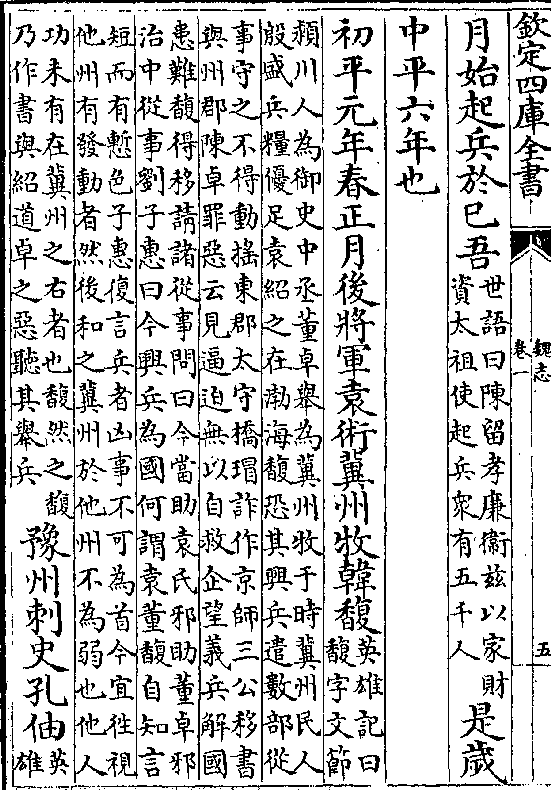 欽定四庫全書
魏志
卷一
五
月始起兵於已吾世語曰陳留孝廉衞兹以家財
資太祖使起兵衆有五千人是歲
中平六年也
初平元年春正月後將軍袁術冀州牧韓馥英雄記曰
馥字文節
潁川人為御史中丞董卓舉為冀州牧于時冀州民人
殷盛兵糧優足袁紹之在渤海馥恐其興兵遣數部從
事守之不得動搖東郡太守橋瑁詐作京師三公移書
與州郡陳卓罪惡云見逼迫無以自救企望義兵解國
患難馥得移請諸從事問曰今當助袁氏邪助董卓邪
治中從事劉子惠曰今興兵為國何謂袁董馥自知言
短而有慙色子惠復言兵者凶事不可為首今宜徃視
他州有發動者然後和之冀州於他州不為弱也他人
功未有在冀州之右者也馥然之馥
乃作書與紹道卓之惡聽其舉兵豫州刺史孔伷英
雄